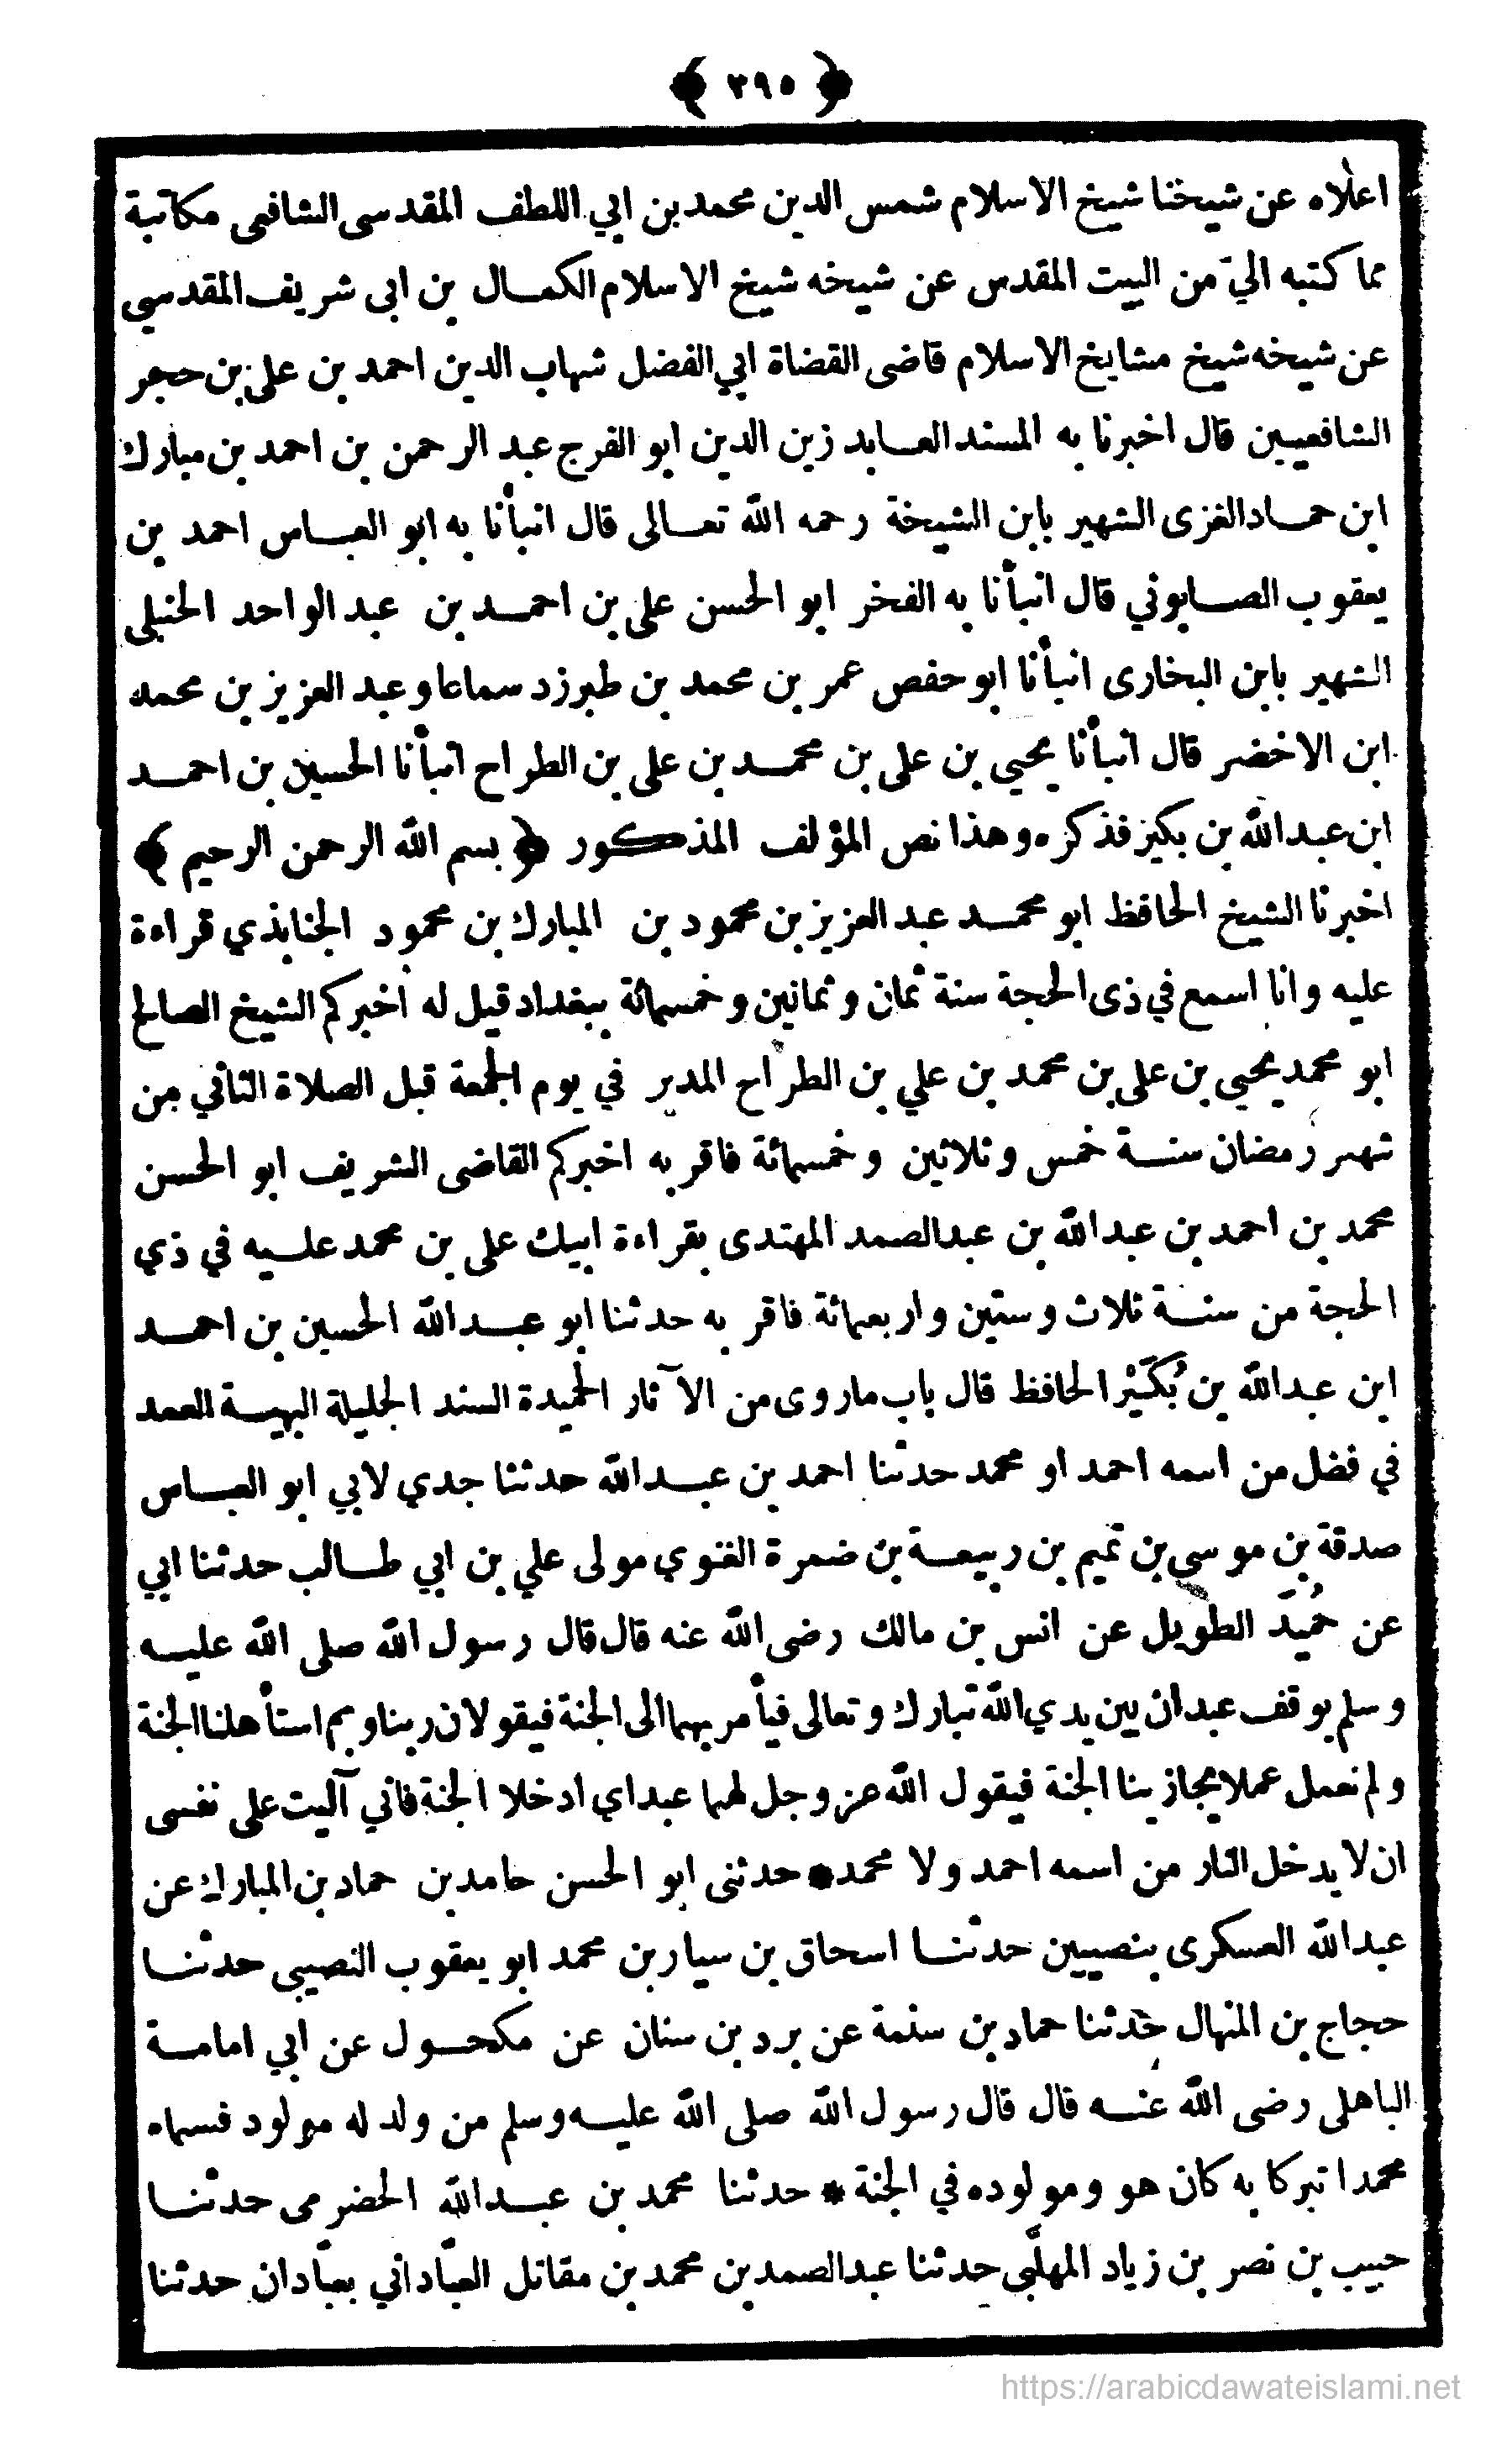 ﴿ ٣٩٥ ﴾
اعلاه عن شيختنا شيخ الاسلام شمس الدين محمد بن ابي اللطف المقدسى الشافعى مكاتبة
مما كتبه اليّ من البيت المقدس عن شيخه شيخ الاسلام الكمـال بن ابى شريف المقدسي
عن شيخه شيخ مشايخ الاسلام قاضى القضاة ابي الفضل شهاب الدين احمد بن على بن حجر
الشافعيين قال اخبرنا به المسند العـابد زين الدين ابو الفرج عبد الرحمن بن احمد بن مبارك
ابن حمـاد الغزى الشهير بابن الشيخة رحمه الله تعـالى قال انبأنا به ابو العبـاس احمد بن
يعقوب الصـابوني قال انبأنا به الفخر ابو الحسن على بن احمـد بن عبد الواحد الحنبلى
الشهير بابن البخارى انبأنا ابو حفص عمر بن محمد بن طبرزد سماعا وعبد العزيز بن محمد
ابن الاخضر قال انبأنا يحيي بن على بن محمـد بن على بن الطراح انبأنا الحسين بن احمـد
ابن عبد الله بن بكيز فذكره وهذا نص المؤلف المذكور ﴿ بسم الله الرحمن الرحيم ﴾
اخبرنا الشيخ الحافظ ابو محمـد عبد العزيز بن محمود بن المبارك بن محمود الجنابذي قراءة
عليه وانا اسمع في ذى الحجة سنة ثمان وثمانين وخمسمائة ببغداد قيل له اخبركم الشيخ الصالح
ابو محمد يحيى بن على بن محمد بن علي بن الطراح المدير في يوم الجمعة قبل الصلاة الثاني من
شهر رمضان سنـة خمس وثلاثين وخمسمائة فاقر به اخبركم القاضى الشريف ابو الحسن
محمد بن احمد بن عبد الله بن عبد الصمد المهتدى بقراءة ابيك على بن محمد عليـه في ذي
الحجة من سنـة ثلاث وستين واربعمائة فاقر به حدثنا ابو عبـد الله الحسين بن احمـد
ابن عبد الله بن بُكَيْر الحافظ قال باب ماروى من الآثار الحميدة السند الجليلة البهيـة العمد
في فضل من اسمه احمد او محمد حدثنا احمد بن عبـد الله حدثنا جدي لابي ابو العبـاس
صدقة بن موسى بن تميم بن ربيعـة بن ضمرة الغنوي مولى علي بن ابي طـالب حدثنا ابي
عن حُمَيد الطويل عن انس بن مالك رضى الله عنه قال قال رسول الله صلى الله عليـه
وسلم يوقف عبدان بين يدي الله تبارك وتعالى فيأمر بهما الى الجنة فيقولان ربنا وبم استأهلنا الجنة
ولم نعمل عملا يجازينا الجنة فيقول الله عز وجل لهما عبداي ادخلا الجنة فاني آليت على نفسى
ان لا يدخل النار من اسمه احمد ولا محمد * حدثنى ابو الحسن حامد بن حماد بن المبارك عن
عبد الله العسكرى بنصيبين حدثنـا اسحاق بن سيار بن محمد ابو يعقوب النصيبى حدثنـا
حجاج بن المنهال حدثنا حماد بن سلمة عن برد بن سنان عن مكحـول عن ابي امامـة
الباهلى رضى الله عنـه قال قال رسول الله صلى الله عليـه وسلم من ولد له مولود فسماه
محمدا تبركا به كان هو ومولوده في الجنة * حدثنا محمد بن عبـد الله الحضرمى حدثنـا
حبيب بن نصر بن زياد المهلَّبى حدثنا عبد الصمد بن محمد بن مقاتل العبّاداني بعبّادان حدثنا
https://arabicdawateislami.net